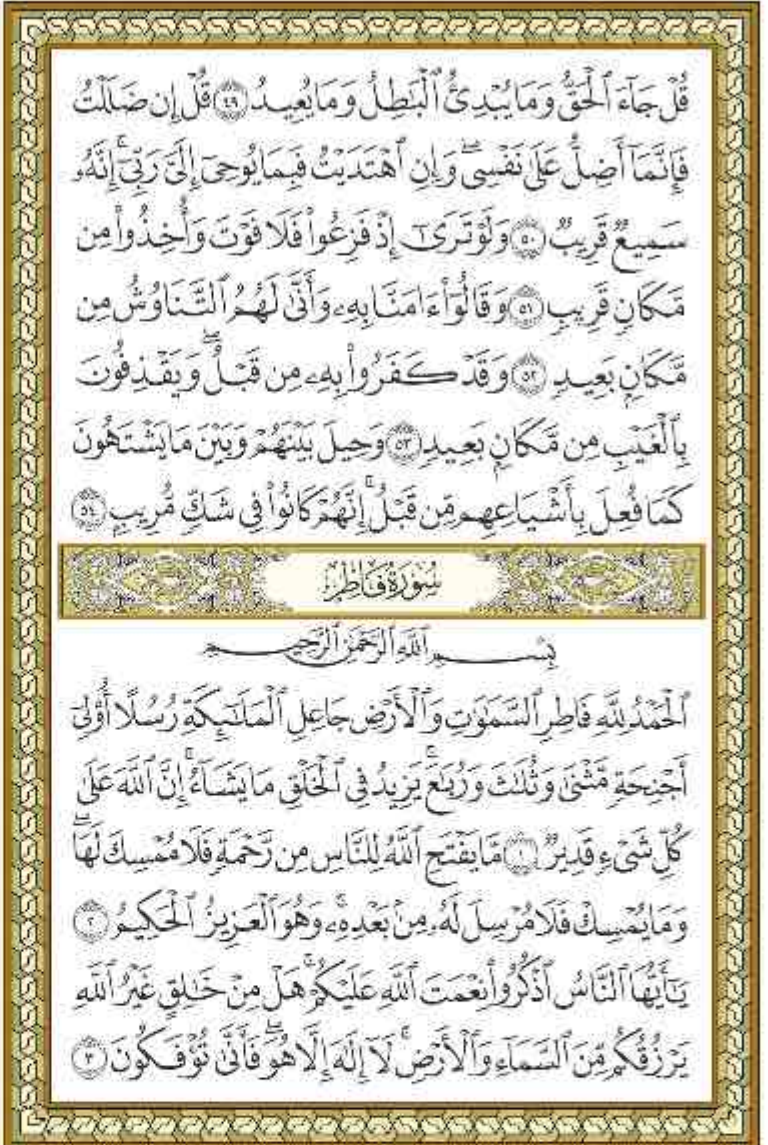 قُلْ جَآءَ ٱلْحَقُّ وَمَا يُبْدِئُ ٱلْبَٰطِلُ وَمَا يُعِيدُ ٤٩ قُلْ إِن ضَلَلْتُ
فَإِنَّمَآ أَضِلُّ عَلَىٰ نَفْسِىۖ وَإِنِ ٱهْتَدَيْتُ فَبِمَا يُوحِىٓ إِلَىَّ رَبِّىٓۚ إِنَّهُۥ
سَمِيعٌ قَرِيبٌ ٥٠ وَلَوْ تَرَىٰٓ إِذْ فَزِعُوا۟ فَلَا فَوْتَ وَأُخِذُوا۟ مِن
مَّكَانٍ قَرِيبٍ ٥١ وَقَالُوٓا۟ ءَامَنَّا بِهِۦ وَأَنَّىٰ لَهُمُ ٱلتَّنَاوُشُ مِن
مَّكَانٍۭ بَعِيدٍ ٥٢ وَقَدْ كَفَرُوا۟ بِهِۦ مِن قَبْلُۖ وَيَقْذِفُونَ
بِٱلْغَيْبِ مِن مَّكَانٍۭ بَعِيدٍ ٥٣ وَحِيلَ بَيْنَهُمْ وَبَيْنَ مَا يَشْتَهُونَ
كَمَا فُعِلَ بِأَشْيَاعِهِم مِّن قَبْلُۚ إِنَّهُمْ كَانُوا۟ فِى شَكٍّ مُّرِيبٍۭ ٥٤
سُورَةُ فَاطِرٍ
بِسْمِ ٱللَّهِ ٱلرَّحْمَٰنِ ٱلرَّحِيمِ
ٱلْحَمْدُ لِلَّهِ فَاطِرِ ٱلسَّمَٰوَٰتِ وَٱلْأَرْضِ جَاعِلِ ٱلْمَلَٰٓئِكَةِ رُسُلًا أُو۟لِىٓ
أَجْنِحَةٍ مَّثْنَىٰ وَثُلَٰثَ وَرُبَٰعَۚ يَزِيدُ فِى ٱلْخَلْقِ مَا يَشَآءُۚ إِنَّ ٱللَّهَ عَلَىٰ
كُلِّ شَىْءٍ قَدِيرٌ ١ مَّا يَفْتَحِ ٱللَّهُ لِلنَّاسِ مِن رَّحْمَةٍ فَلَا مُمْسِكَ لَهَاۖ
وَمَا يُمْسِكْ فَلَا مُرْسِلَ لَهُۥ مِنۢ بَعْدِهِۦۚ وَهُوَ ٱلْعَزِيزُ ٱلْحَكِيمُ ٢
يَٰٓأَيُّهَا ٱلنَّاسُ ٱذْكُرُوا۟ نِعْمَتَ ٱللَّهِ عَلَيْكُمْۚ هَلْ مِنْ خَٰلِقٍ غَيْرُ ٱللَّهِ
يَرْزُقُكُم مِّنَ ٱلسَّمَآءِ وَٱلْأَرْضِۚ لَآ إِلَٰهَ إِلَّا هُوَۖ فَأَنَّىٰ تُؤْفَكُونَ ٣